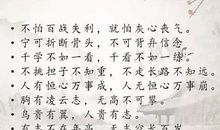 · 不怕百战失利，就怕灰心丧气。
· 宁可折断骨头，不可背弃信念。
· 千学不如一看，千看不如一练。
· 不挑担子不知重，不走长路不知远。
· 人有恒心万事成，人无恒心万事崩。
· 胸有凌云志，无高不可攀。
· 鸟贵有翼，人贵有志。